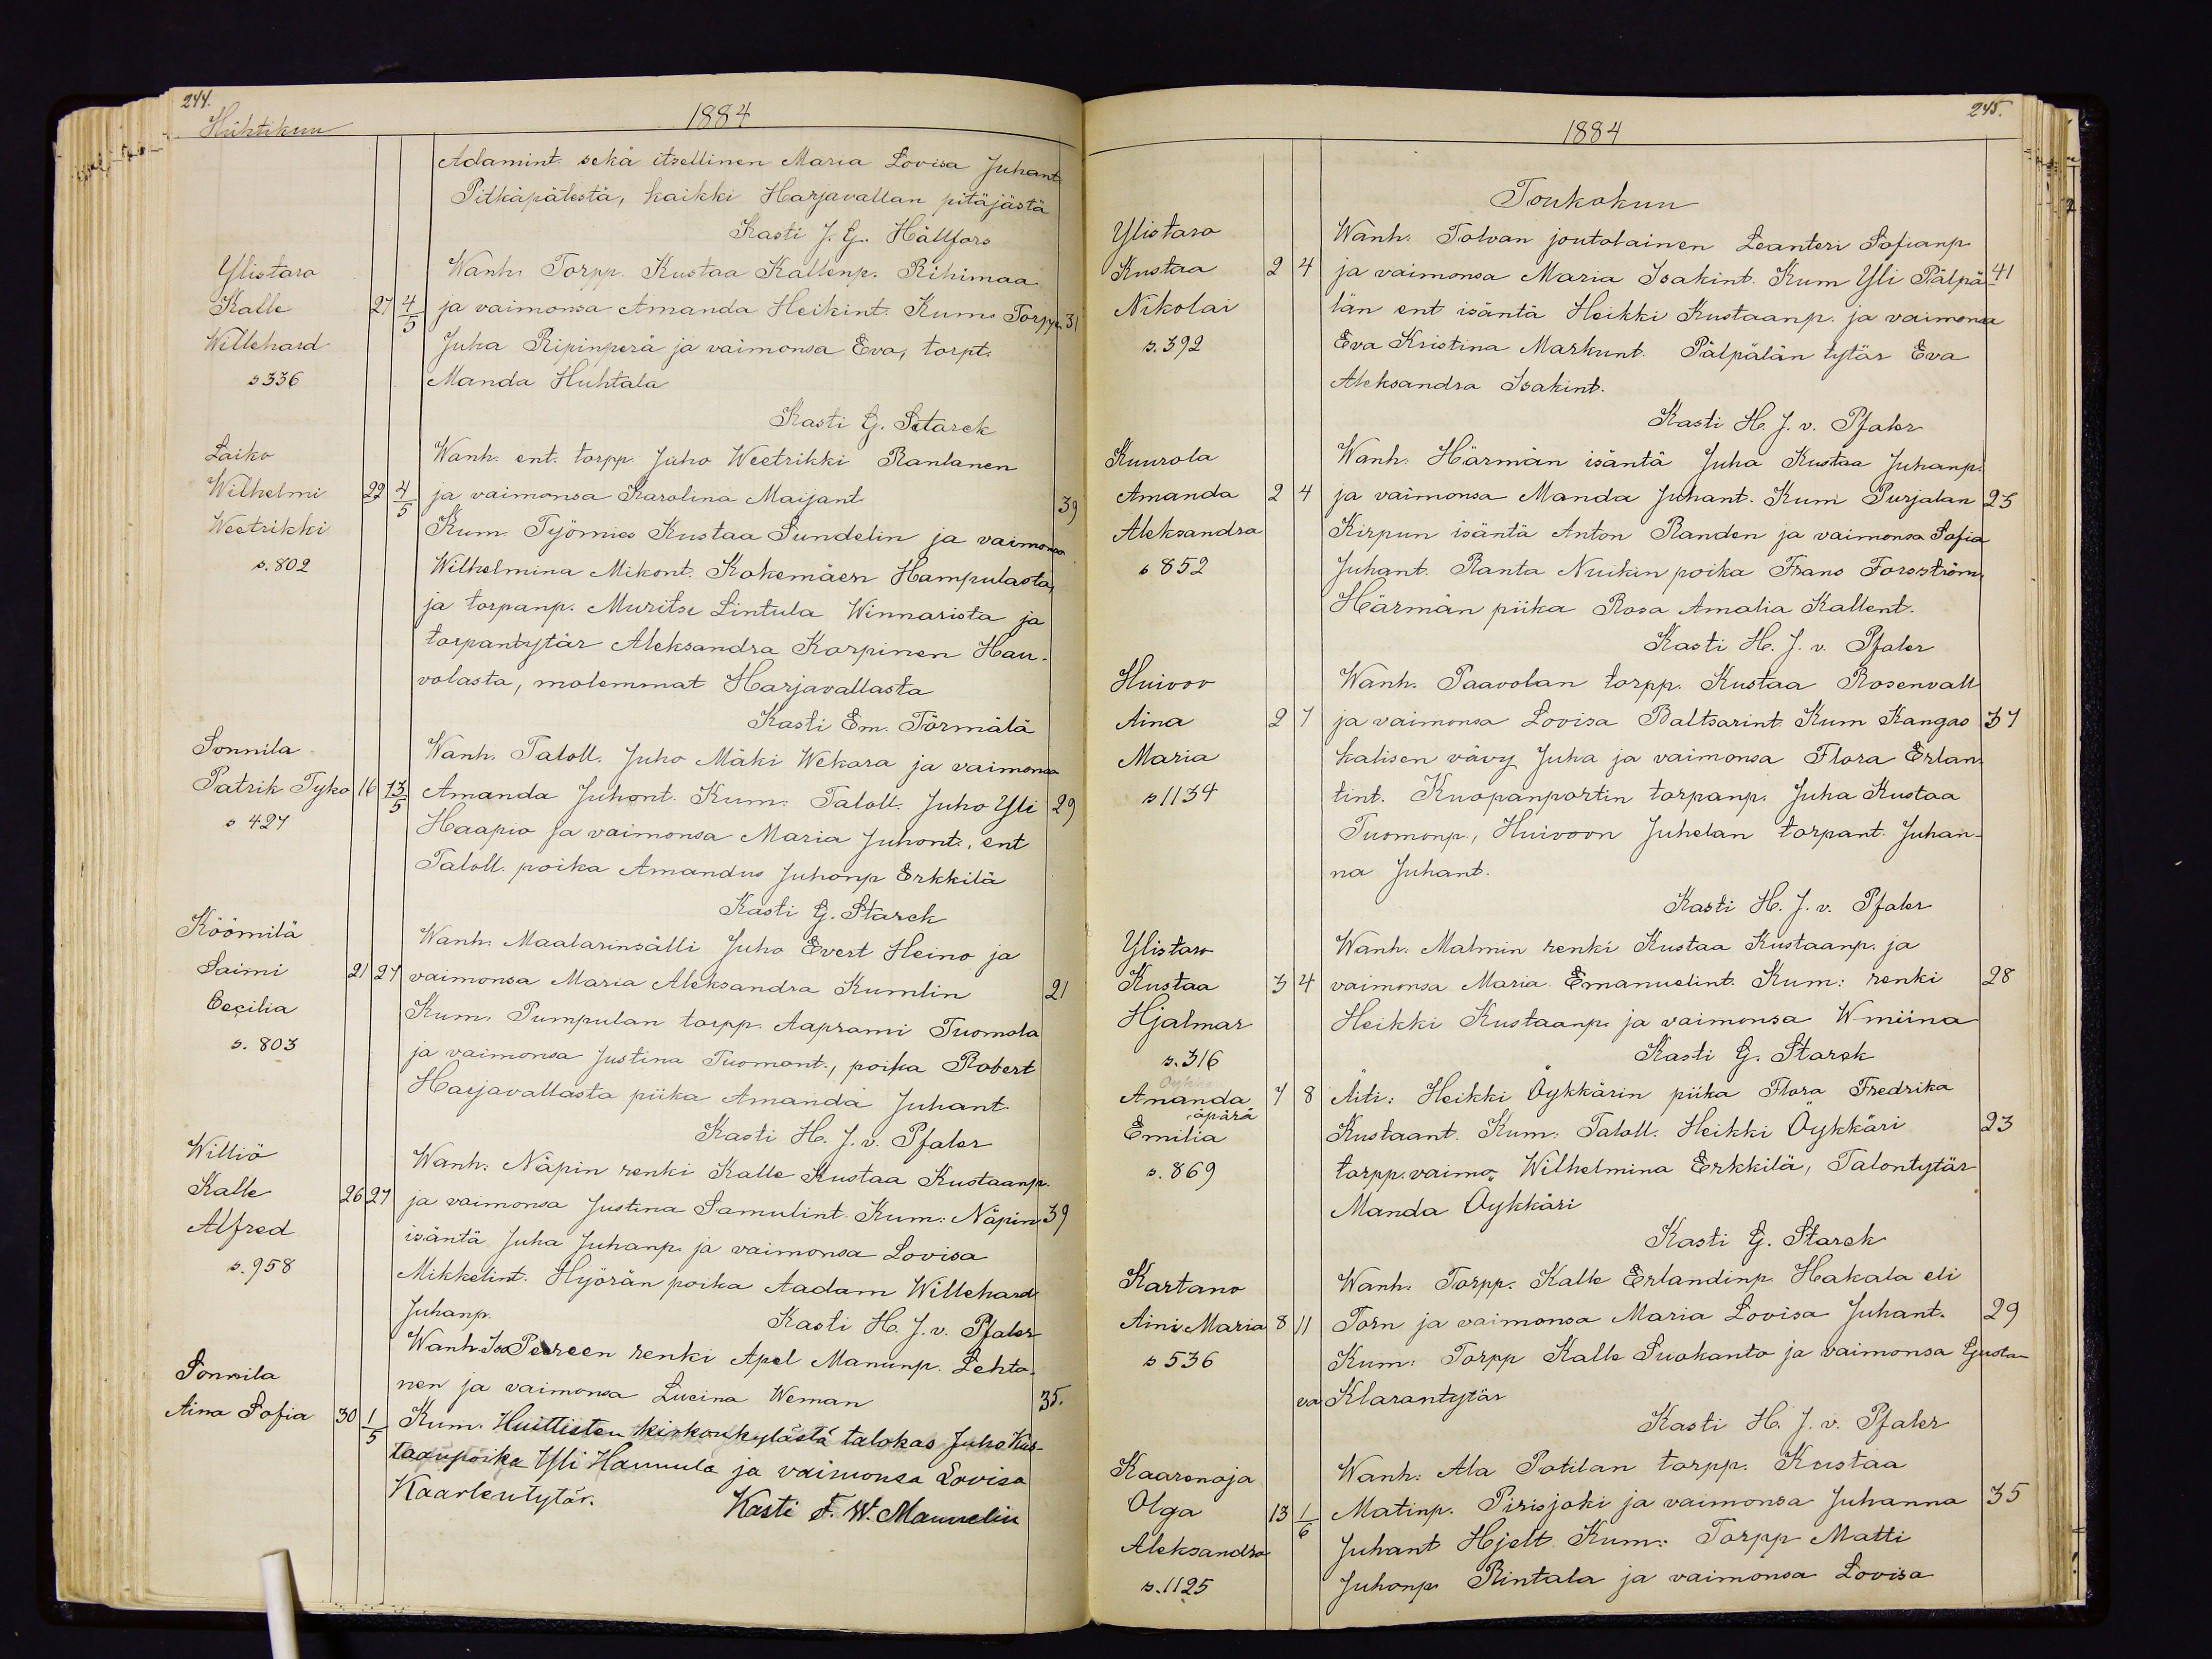 244.
Huhtikuu
1884
Adamint. sekä itsellinen Maria Lovisa Juhant
Pitkäpälestä, kaikki Harjavallan pitäjästä
Kasti J. G. Hällfors
Ylistaro
Kalle
Willehard
s 336
27 4/5
Wanh. Torpp. Kustaa Kallenp. Rihimaa
ja vaimonsa Amanda Heikint. Kum. Torpp. 31
Juha Ripinperä ja vaimonsa Eva, torpt.
Manda Huhtala
Kasti G. Starck
Laiko
Wilhelmi
Weetrikki
s. 802
22 4/5
Wanh. ent. torpp. Juho Weetrikki Ranlanen
ja vaimonsa Karolina Maijant 39
Kum. Työmies Kustaa Sundelin ja vaimonsa
Wilhelmina Mikont. Kokemäen Hampulasta,
ja torpanp. Muritse Lintula Winnarista ja
torpantytär Aleksandra Korpinen Hau-
volasta, molemmat Harjavallasta
Kasti Em. Törmälä
Sonnila
Patrik Tyko
s 427
16 13/5
Wanh. Taloll. Juho Mäki Wekara ja vaimonsa
Amanda Juhont. Kum. Taloll. Juho Yli 29
Haapio ja vaimonsa Maria Juhont., ent
Taloll. poika Amandus Juhonp Erkkilä
Kasti G. Starck
Köömilä
Saimi
Cecilia
s. 803
21 27
Wanh. Maalarinsälli Juho Evert Heino ja
vaimonsa Maria Aleksandra Kumlin 21
Kum. Pumpulan torpp. Aaprami Tuomola
ja vaimonsa Justina Tuomont., poika Robert
Harjavallasta piika Amanda Juhant.
Kasti H. J. v. Pfaler
Williö
Kalle
Alfred
s. 958
26 27
Wanh. Näpin renki Kalle Kustaa Kustaanp.
ja vaimonsa Justina Samulint. Kum: Näpin 39
isäntä Juha Juhanp. ja vaimonsa Lovisa
Mikkelint. Hyörän poika Aadam Willehard
Juhanp.
Kasti H. J. v. Pfaler
Sonnila
Aina Sofia
30 1/5
Wanh. Iso Peereen renki Apel Manunp. Lehto-
nen ja vaimonsa Lucina Weman 35.
Kum. Huittisten kirkonkylästä talokas Juho Kus-
taanpoika Yli Hannula ja vaimonsa Lovisa
Kaarlentytär.
Kasti F. W. Mannelin
245.
1884
Toukokuu
Ylistaro
Kustaa
Nikolai
s. 392
2 4
Wanh. Tolvan joutolainen Leanteri Sofianp
ja vaimonsa Maria Isakint. Kum Yli Pälpä- 41
län ent isäntä Heikki Kustaanp. ja vaimonsa
Eva Kristina Markunt. Pälpälän tytär Eva
Aleksandra Isakint.
Kasti H. J. v. Pfaler
Kuurola
Amanda
Aleksandra
s 852
2 4
Wanh. Härmän isäntä Juha Kustaa Juhanp.
ja vaimonsa Manda Juhant. Kum Purjalan 25
Kirpun isäntä Anton Randen ja vaimonsa Sofia
Juhant. Ranta Nuikin poika Frans Forsström,
Härmän piika Rosa Amalia Kallent.
Kasti H. J. v. Pfaler
Huivoo
Aina
Maria
s 1134
2 7
Wanh. Paavolan torpp. Kustaa Rosenvall
ja vaimonsa Lovisa Baltsarint. Kum Kangas 37
kalisen vävy Juha ja vaimonsa Flora Erlan
tint. Kuopanportin torpanp. Juha Kustaa
Tuomonp., Huivoon Juhelan torpant. Juhan-
na Juhant.
Kasti H. J. v. Pfaler
Ylistaro
Kustaa
Hjalmar
s. 316
3 4
Wanh. Malmin renki Kustaa Kustaanp. ja
vaimonsa Maria Emanuelint. Kum: renki 28
Heikki Kustaanp. ja vaimonsa Wmiina
Kasti G. Starck
Amanda
äpärä
Emilia
s. 869
7 8
Äiti: Heikki Öykkärin piika Flora Fredrika
Kustaant. Kum: Taloll. Heikki Öykkäri 23
torpp. vaimo Wilhelmina Erkkilä, Talontytär
Manda Öykkäri
Kasti G. Starck
Kartano
Aini Maria
s 536
8 11
Wanh. Torpp. Kalle Erlandinp. Hakala eli
Torn ja vaimonsa Maria Lovisa Juhant. 29
Kum: Torpp Kalle Suokanto ja vaimonsa Gusta-
va Klarantytär
Kasti H. J. v. Pfaler
Kaarenoja
Olga
Aleksandra
s. 1125
13 1/6
Wanh. Ala Potilan torpp. Kustaa
Matinp. Pirisjoki ja vaimonsa Juhanna 35
Juhant Hjelt. Kum: Torpp Matti
Juhonp. Rintala ja vaimonsa Lovisa